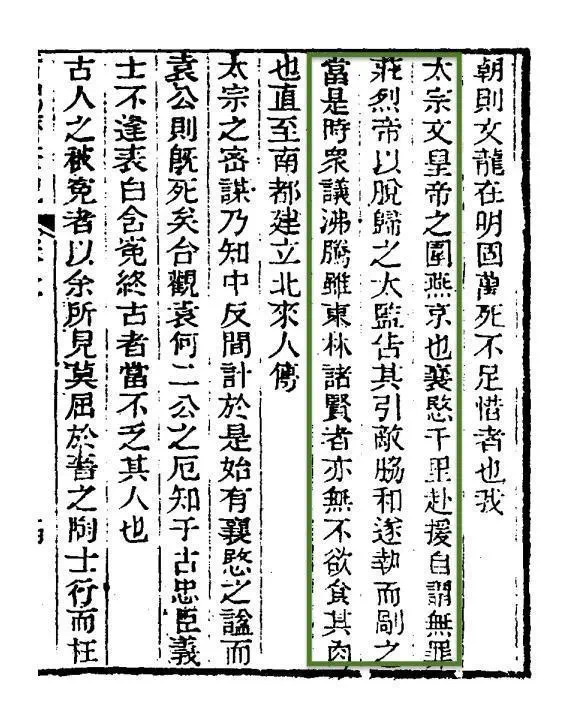 朝則文龍在明固萬死不足惜者也我
太宗文皇帝之圍燕京也襄愍千里赴援自謂無罪
莊烈帝以脫歸之太監告其引敵脇和遂執而剮之
當是時衆議沸騰雖東林諸賢者亦無不欲食其肉
也直至南都建立北來人傳
太宗之密謀乃知中反間計於是始有襄愍之謚而
袁公則旣死矣台觀袁何二公之厄知于古忠臣義
士不逢表白含寃終古者當不乏其人也
古人之被寃者以余所見莫屈於晉之陶士行而枉